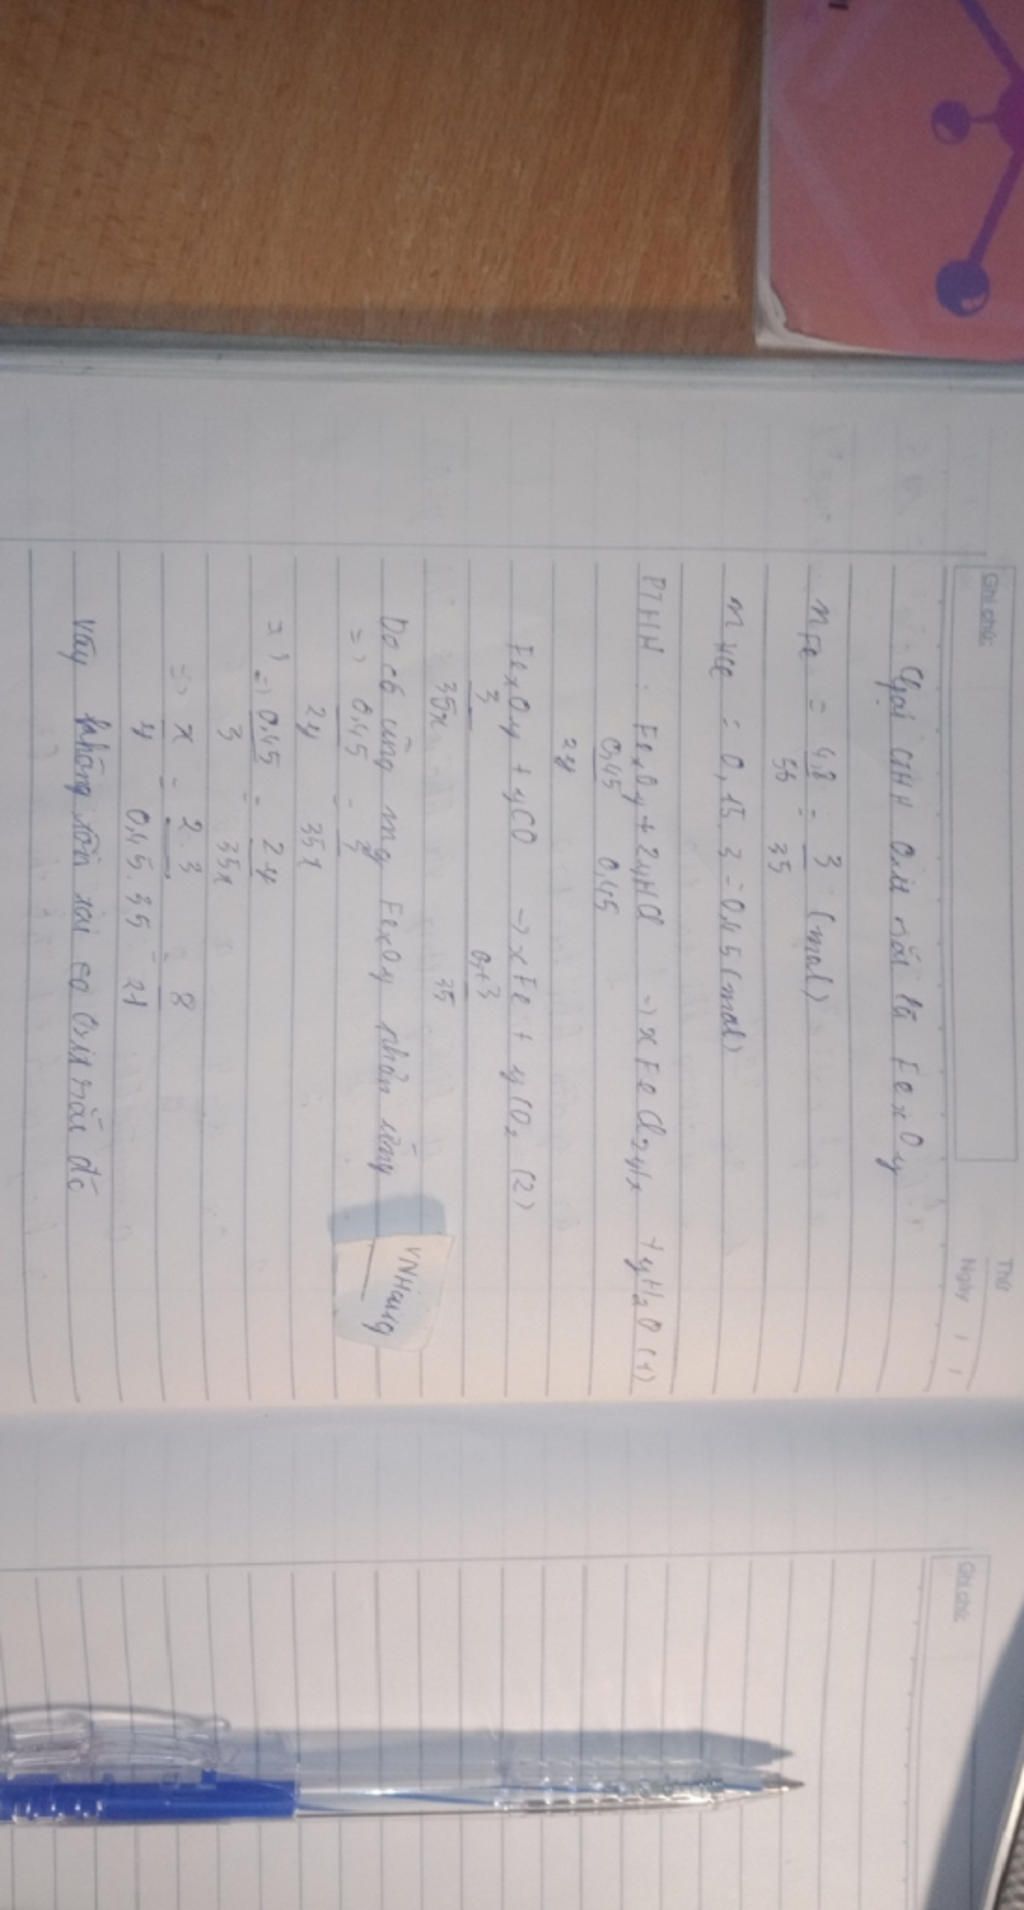 Ghi chú:
Thứ
Ngày / /
Gọi CTHH oxit sắt là FexOy
nFe = 4,8/56 = 3/35 (mol)
nHCl = 0,15.3 = 0,45 (mol)
PTHH : FexOy + 2yHCl → xFeCl2y/x + yH2O (1)
0,45/2y 0,45
FexOy + yCO → xFe + yCO2 (2)
3/35x 3/35
Do cứ cùng mg FexOy phản ứng
=> 0,45/2y = 3/35x
=> 0,45/3 = 2y/35x
=> x/y = 2.3/0,45.35 = 8/21
Vậy không tồn tại
VNHang
Ghi chú: